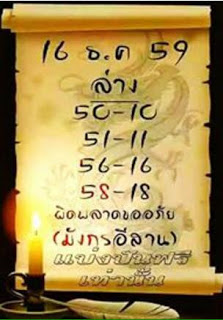 16 ธ.ค 59
ล่าง
50-10
51-11
56-16
58-18
ผิดพลาดขออภัย
(มังกรอีสาน)
แบ่งปันฟรี
เท่านั้น